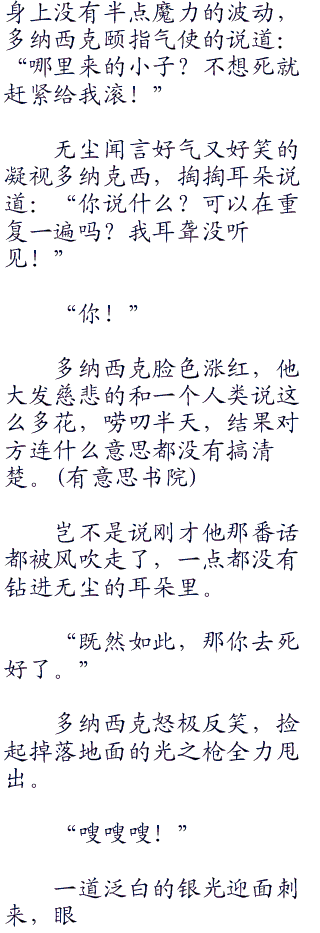 身上没有半点魔力的波动，
多纳西克颐指气使的说道：
“哪里来的小子？不想死就
赶紧给我滚！”
无尘闻言好气又好笑的
凝视多纳克西，掏掏耳朵说
道：“你说什么？可以在重
复一遍吗？我耳聋没听
见！”
“你！”
多纳西克脸色涨红，他
大发慈悲的和一个人类说这
么多花，唠叨半天，结果对
方连什么意思都没有搞清
楚。(有意思书院)
岂不是说刚才他那番话
都被风吹走了，一点都没有
钻进无尘的耳朵里。
“既然如此，那你去死
好了。”
多纳西克怒极反笑，捡
起掉落地面的光之枪全力甩
出。
“嗖嗖嗖！”
一道泛白的银光迎面刺
来，眼